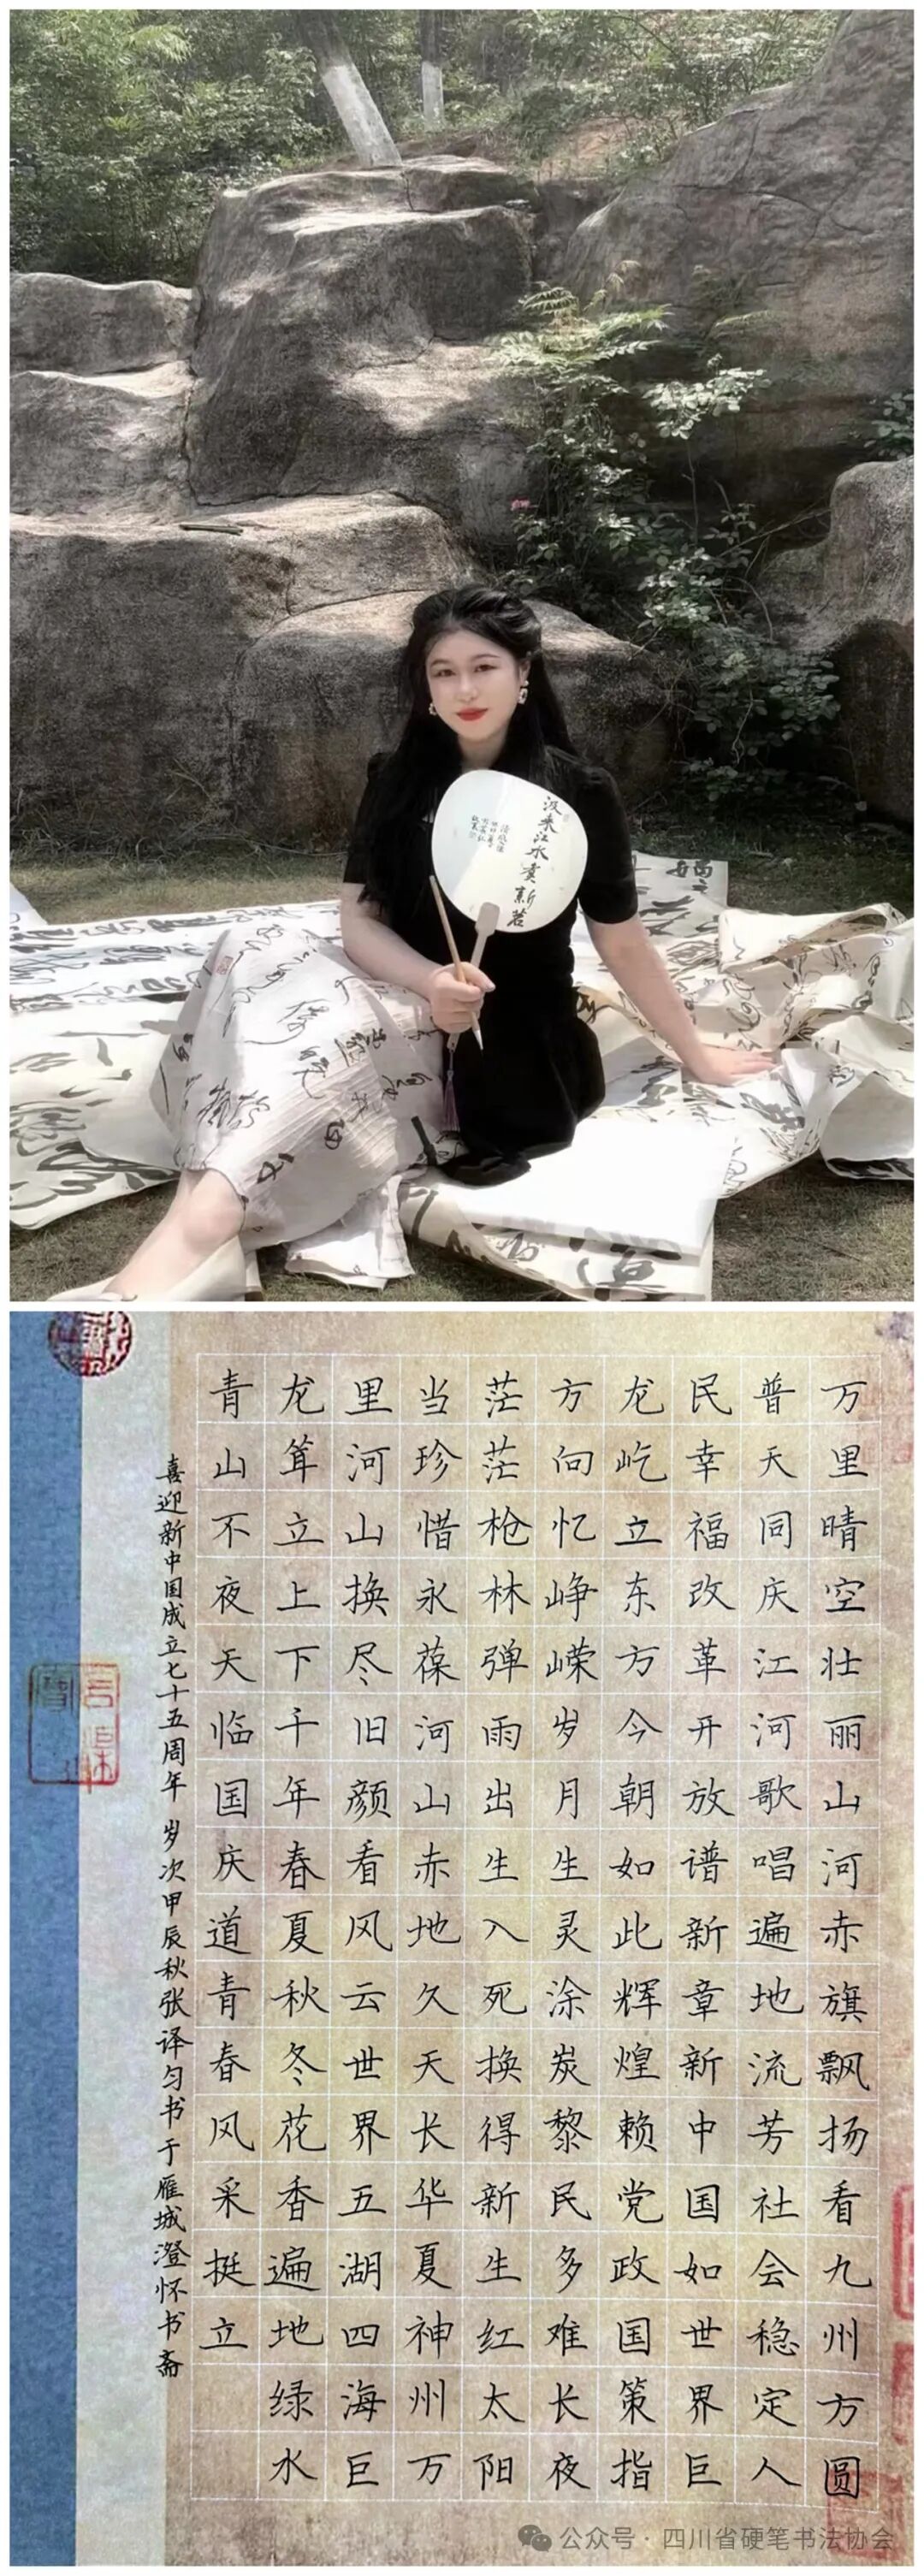 汲来江水煮新茗
万里晴空壮丽山河赤旗飘扬看九州方圆
普天同庆江河歌唱遍地流芳社会稳定人
民幸福改革开放谱新章新中国如世界巨
龙屹立东方今朝如此辉煌赖党政国策指
方向忆峥嵘岁月生灵涂炭黎民多难长夜
茫茫枪林弹雨出生入死换得新生红太阳
当珍惜永葆河山赤地久天长华夏神州万
里河山换尽旧颜看风云世界五湖四海巨
龙耸立上下千年春夏秋冬花香遍地绿水
青山不夜天临国庆道青春风采挺立
喜迎新中国成立七十五周年 岁次甲辰秋张译匀书于雁城澄怀书斋
公众号·四川省硬笔书法协会